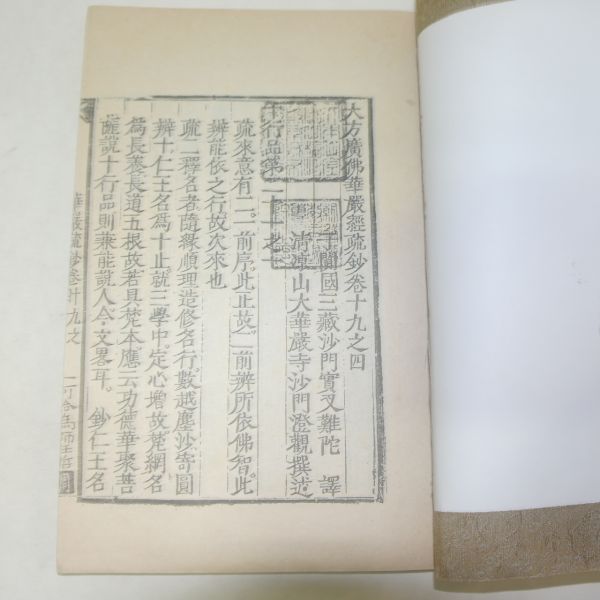 大方廣佛華嚴經疏鈔卷十九之四
于闐國三藏沙門實叉難陀　譯
清涼山大華嚴寺沙門澄觀撰述
十行品第二十一之十
疏來意有二一前序此正故二前辨所依佛智此
辨能依之行故次來也
疏二釋名者隨緣順理造修名行數越塵沙寄圓
辨十仁王名為十止就三學中定心增故梵網名
為長養長道五根故若具梵本應云功德華聚菩
薩說十行品則兼能說人今文畧耳　鈔仁王名
華嚴疏鈔卷十九之